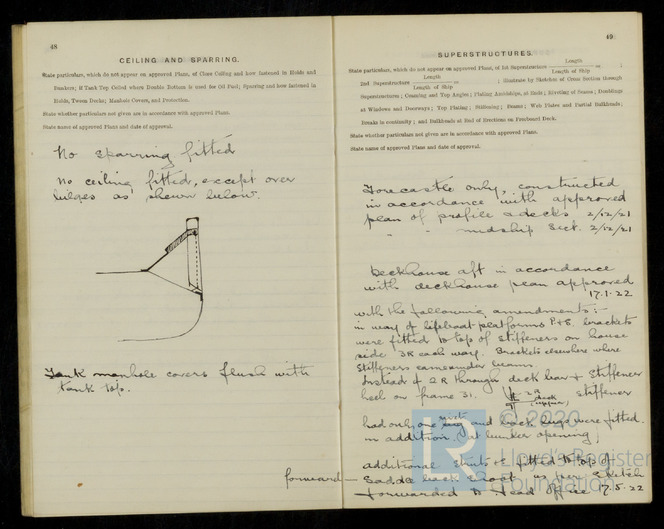 48
CEILING AND SPARRING.
State particulars, which do not appear on approved Plans, of Close Ceiling and how fastened in Holds and
Bunkers; if Tank Top Ceiled where Double Bottom is used for Oil Fuel; Sparring and how fastened in
Holds, Tween Decks; Manhole Covers, and Protection.
State whether particulars not given are in accordance with approved Plans.
State name of approved Plans and date of approval.
No sparring fitted
No ceiling fitted, except over
bilges as shewn below.
Tank manhole covers flush with
tank top.
49
SUPERSTRUCTURES.
State particulars, which do not appear on approved Plans, of 1st Superstructure Length / Length of Ship = ;
2nd Superstructure Length / Length of Ship = ; illustrate by Sketches of Cross Section through
Superstructures; Coaming and Top Angles; Plating Amidships, at Ends; Riveting of Seams; Doublings
at Windows and Doorways; Top Plating; Stiffening; Beams; Web Plates and Partial Bulkheads;
Breaks in continuity; and Bulkheads at End of Erections on Freeboard Deck.
State whether particulars not given are in accordance with approved Plans.
State name of approved Plans and date of approval.
Forecastle only, constructed
in accordance with approved
plan of profile & decks 2/12/21
" " midship Sect. 2/12/21
Deckhouse aft in accordance
with deckhouse plan approved
17.1.22
with the following amendments:-
in way of lifeboat platforms P&S. brackets
were fitted to top of stiffeners on house
side 3R each way. Brackets elsewhere where
stiffeners came under beams.
Instead of 2R through deck bar & stiffener
heel on frame 31. 2R deck stiffener
had only one rivet and back lugs were fitted
in addition. At bunker opening,
additional struts & fitted to top of
forward — Saddle back as per sketch
forwarded to Head Office 17.5.22
© 2020
Lloyd's Register
Foundation